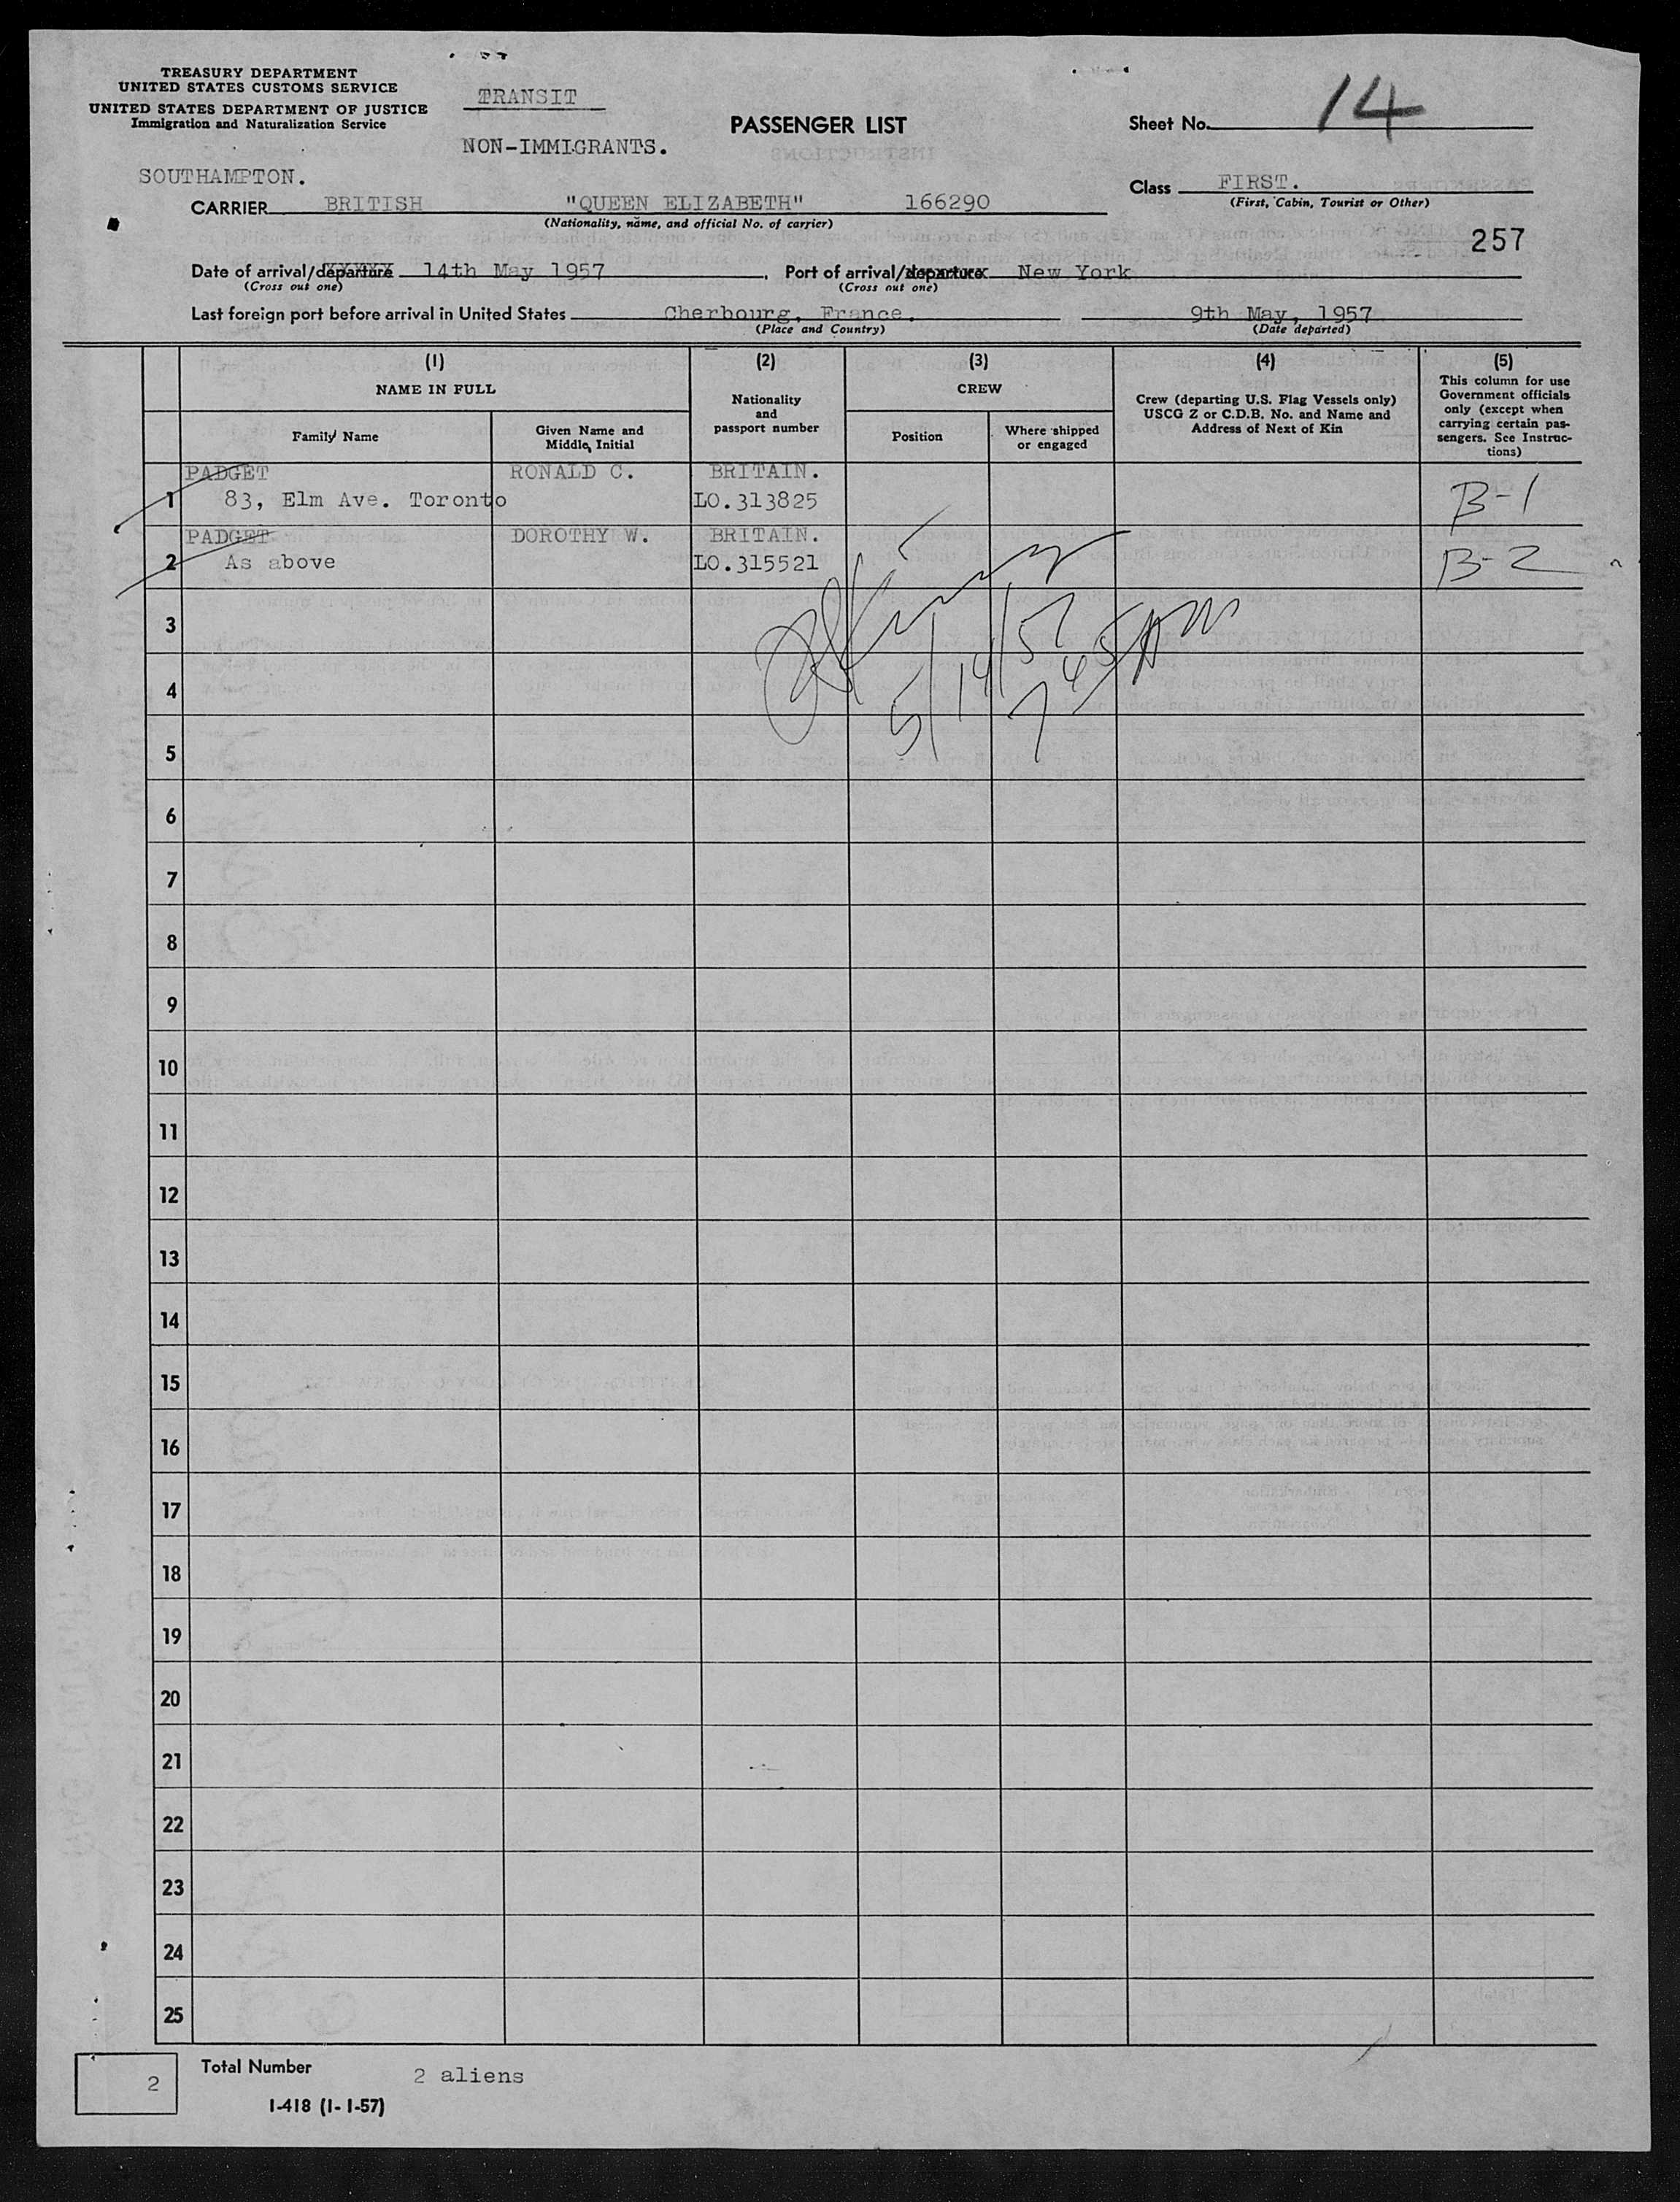 TREASURY DEPARTMENT
UNITED STATES CUSTOMS SERVICE
UNITED STATES DEPARTMENT OF JUSTICE
Immigration and Naturalization Service
TRANSIT
NON-IMMIGRANTS.
PASSENGER LIST
Sheet No. 14
SOUTHAMPTON.
Class FIRST.
(First, Cabin, Tourist or Other)
CARRIER BRITISH "QUEEN ELIZABETH" 166290
(Nationality, name, and official No. of carrier)
257
Date of arrival/departure 14th May 1957. Port of arrival/departure New York
(Cross out one) (Cross out one)
Last foreign port before arrival in United States Cherbourg, France. 9th May, 1957
(Place and Country) (Date departed)
(1) (2) (3) (4) (5)
NAME IN FULL
Family Name
Given Name and
Middle Initial
Nationality
and
passport number
CREW
Position
Where shipped
or engaged
Crew (departing U.S. Flag Vessels only)
USCG Z or C.D.B. No. and Name and
Address of Next of Kin
This column for use
Government officials
only (except when
carrying certain pas-
sengers. See Instruc-
tions)
PADGET RONALD C. BRITAIN.
1 83, Elm Ave. Toronto LO.313825 B-1
PADGET DOROTHY W. BRITAIN.
2 As above LO.315521 B-2
3
5/14/57
745AM
4
5
6
7
8
9
10
11
12
13
14
15
16
17
18
19
20
21
22
23
24
25
2 Total Number 2 aliens
I-418 (1-1-57)